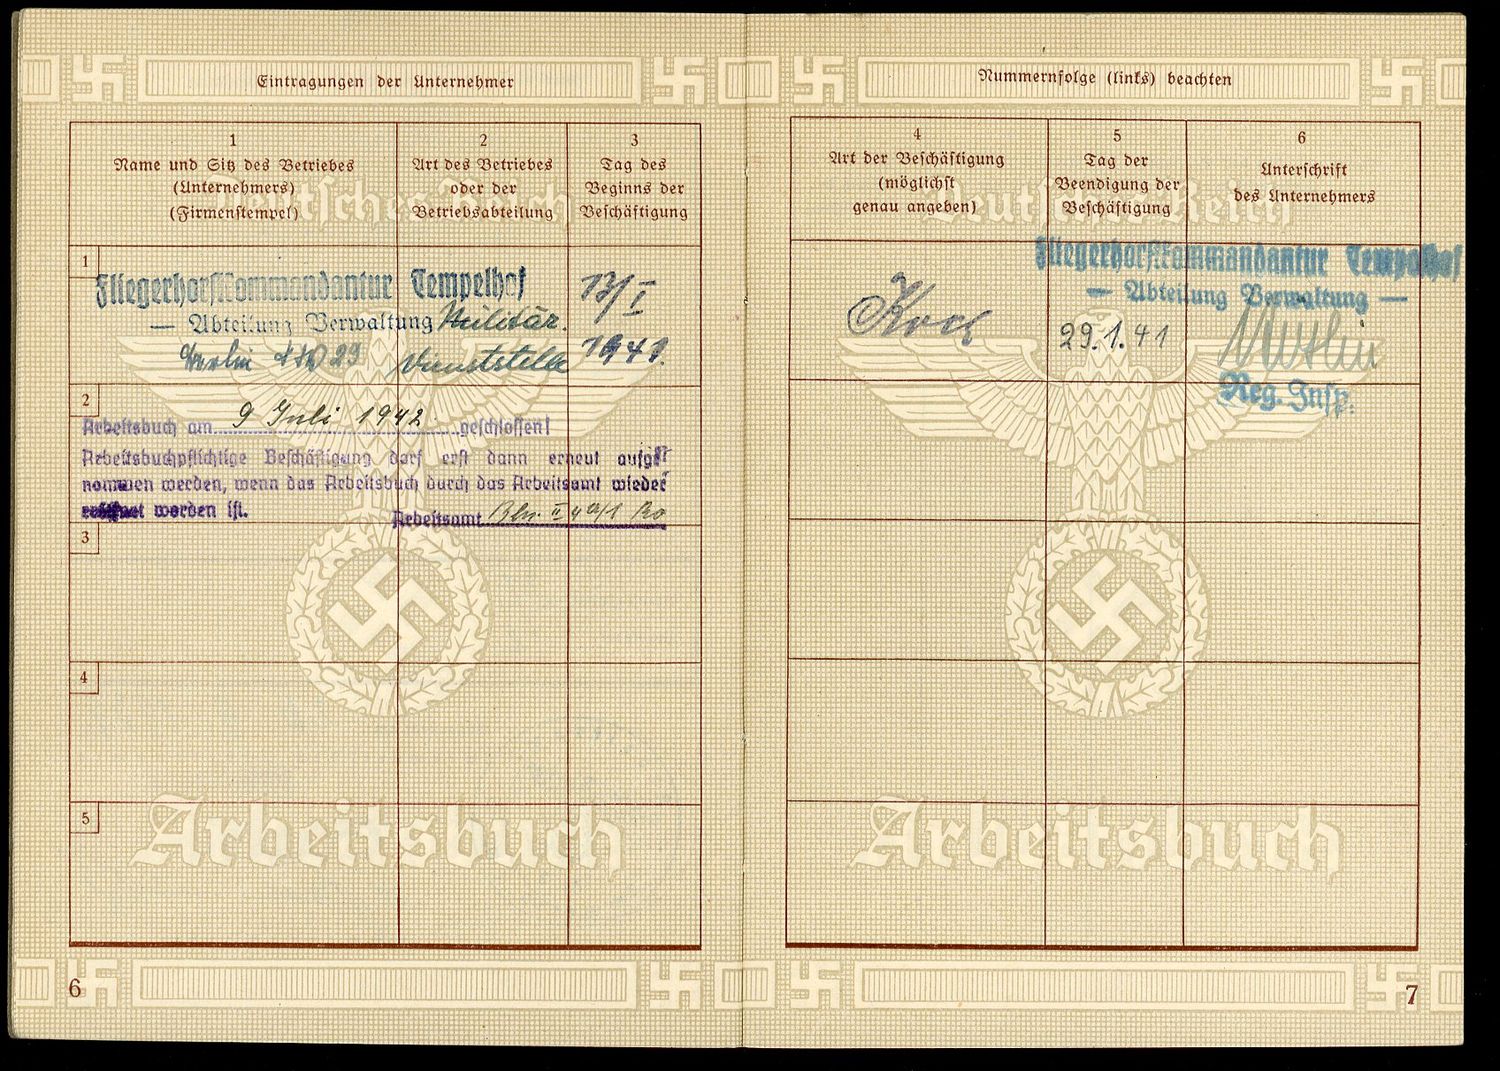 Eintragungen der Unternehmer
1
Name und Sitz des Betriebes
(Unternehmers)
(Firmenstempel)
2
Art des Betriebes
oder der
Betriebsabteilung
3
Tag des
Beginns der
Beschäftigung
Deutsches Reich
1
Fliegerhorstkommandantur Tempelhof
— Abteilung Verwaltung
Berlin SW 29
Militär.
Dienststelle
13/I
1941.
2
Arbeitsbuch am 9 Juli 1942 geschlossen!
Arbeitsbuchpflichtige Beschäftigung darf erst dann erneut aufge-
nommen werden, wenn das Arbeitsbuch durch das Arbeitsamt wieder
eröffnet worden ist.
Arbeitsamt Bln. II
3
4
5
Arbeitsbuch
6
Nummernfolge (links) beachten
4
Art der Beschäftigung
(möglichst
genau angeben)
5
Tag der
Beendigung der
Beschäftigung
6
Unterschrift
des Unternehmers
Deutsches Reich
Koch
29.1.41
Fliegerhorstkommandantur Tempelhof
— Abteilung Verwaltung —
Reg. Insp.
Arbeitsbuch
7